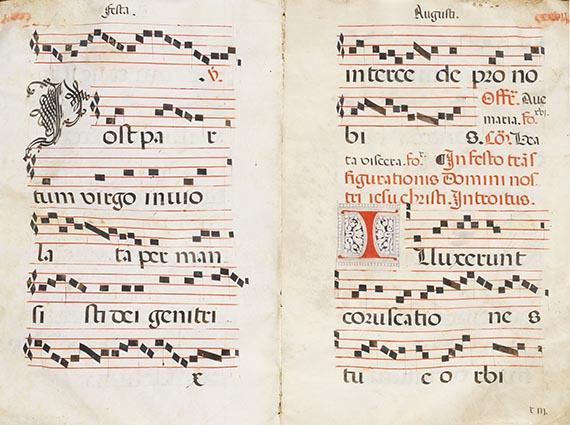 Festa.
℣.
Post pa r
tum virgo inuio
la ta per man
si sti dei genitri
x
Augusti.
interce de pro no
bi s. Offr. Aue
maria. fo. xbi.
Cōr. Bea
ta viscera. fo.
¶ In festo trās
figurationis Domini nos
tri iesu christi. Introitus.
Illuxerunt
coruscatio ne s
tu e o rbi